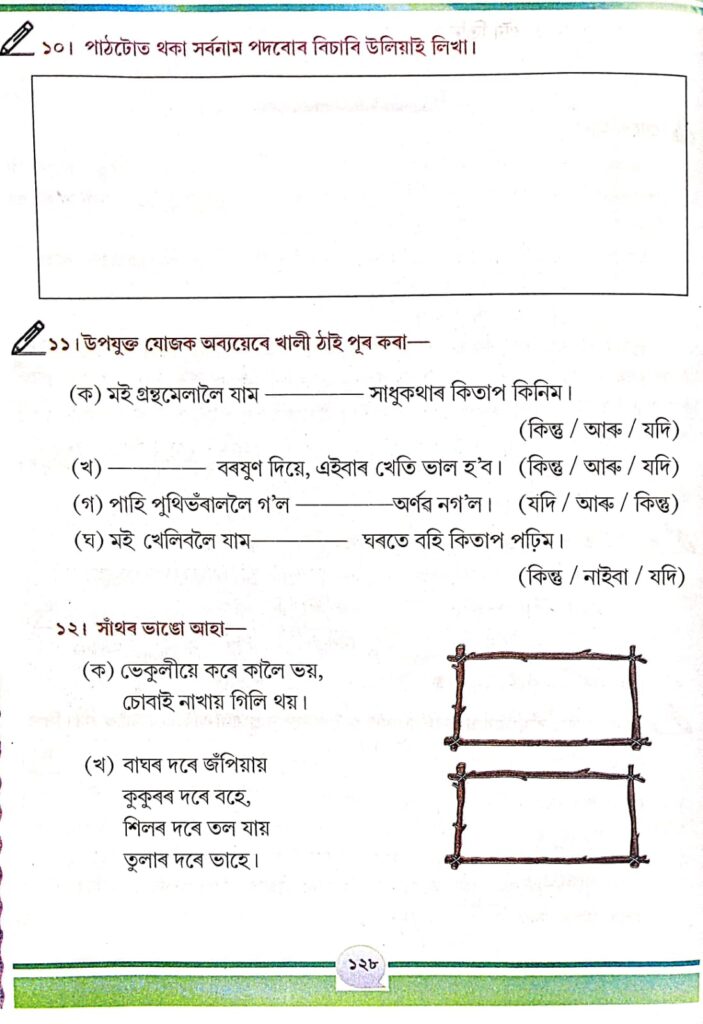 ১০। পাঠটোত থকা সৰ্বনাম পদবোৰ বিচাৰি উলিয়াই লিখা।
১১। উপযুক্ত যোজক অব্যয়েৰে খালী ঠাই পূৰ কৰা—
(ক) মই গ্ৰন্থমেলালৈ যাম ————— সাধুকথাৰ কিতাপ কিনিম।
(কিন্তু / আৰু / যদি)
(খ) ————— বৰষুণ দিয়ে, এইবাৰ খেতি ভাল হ’ব। (কিন্তু / আৰু / যদি)
(গ) পাহি পুথিভঁৰাললৈ গ’ল ————— অৰ্ণৱ নগ’ল। (যদি / আৰু / কিন্তু)
(ঘ) মই খেলিবলৈ যাম————— ঘৰতে বহি কিতাপ পঢ়িম।
(কিন্তু / নাইবা / যদি)
১২। সাঁথৰ ভাঙো আহা—
(ক) ভেকুলীয়ে কৰে কালৈ ভয়,
চোবাই নাখায় গিলি থয়।
(খ) বাঘৰ দৰে জঁপিয়ায়
কুকুৰৰ দৰে বহে,
শিলৰ দৰে তল যায়
তুলাৰ দৰে ভাহে।
১২৮